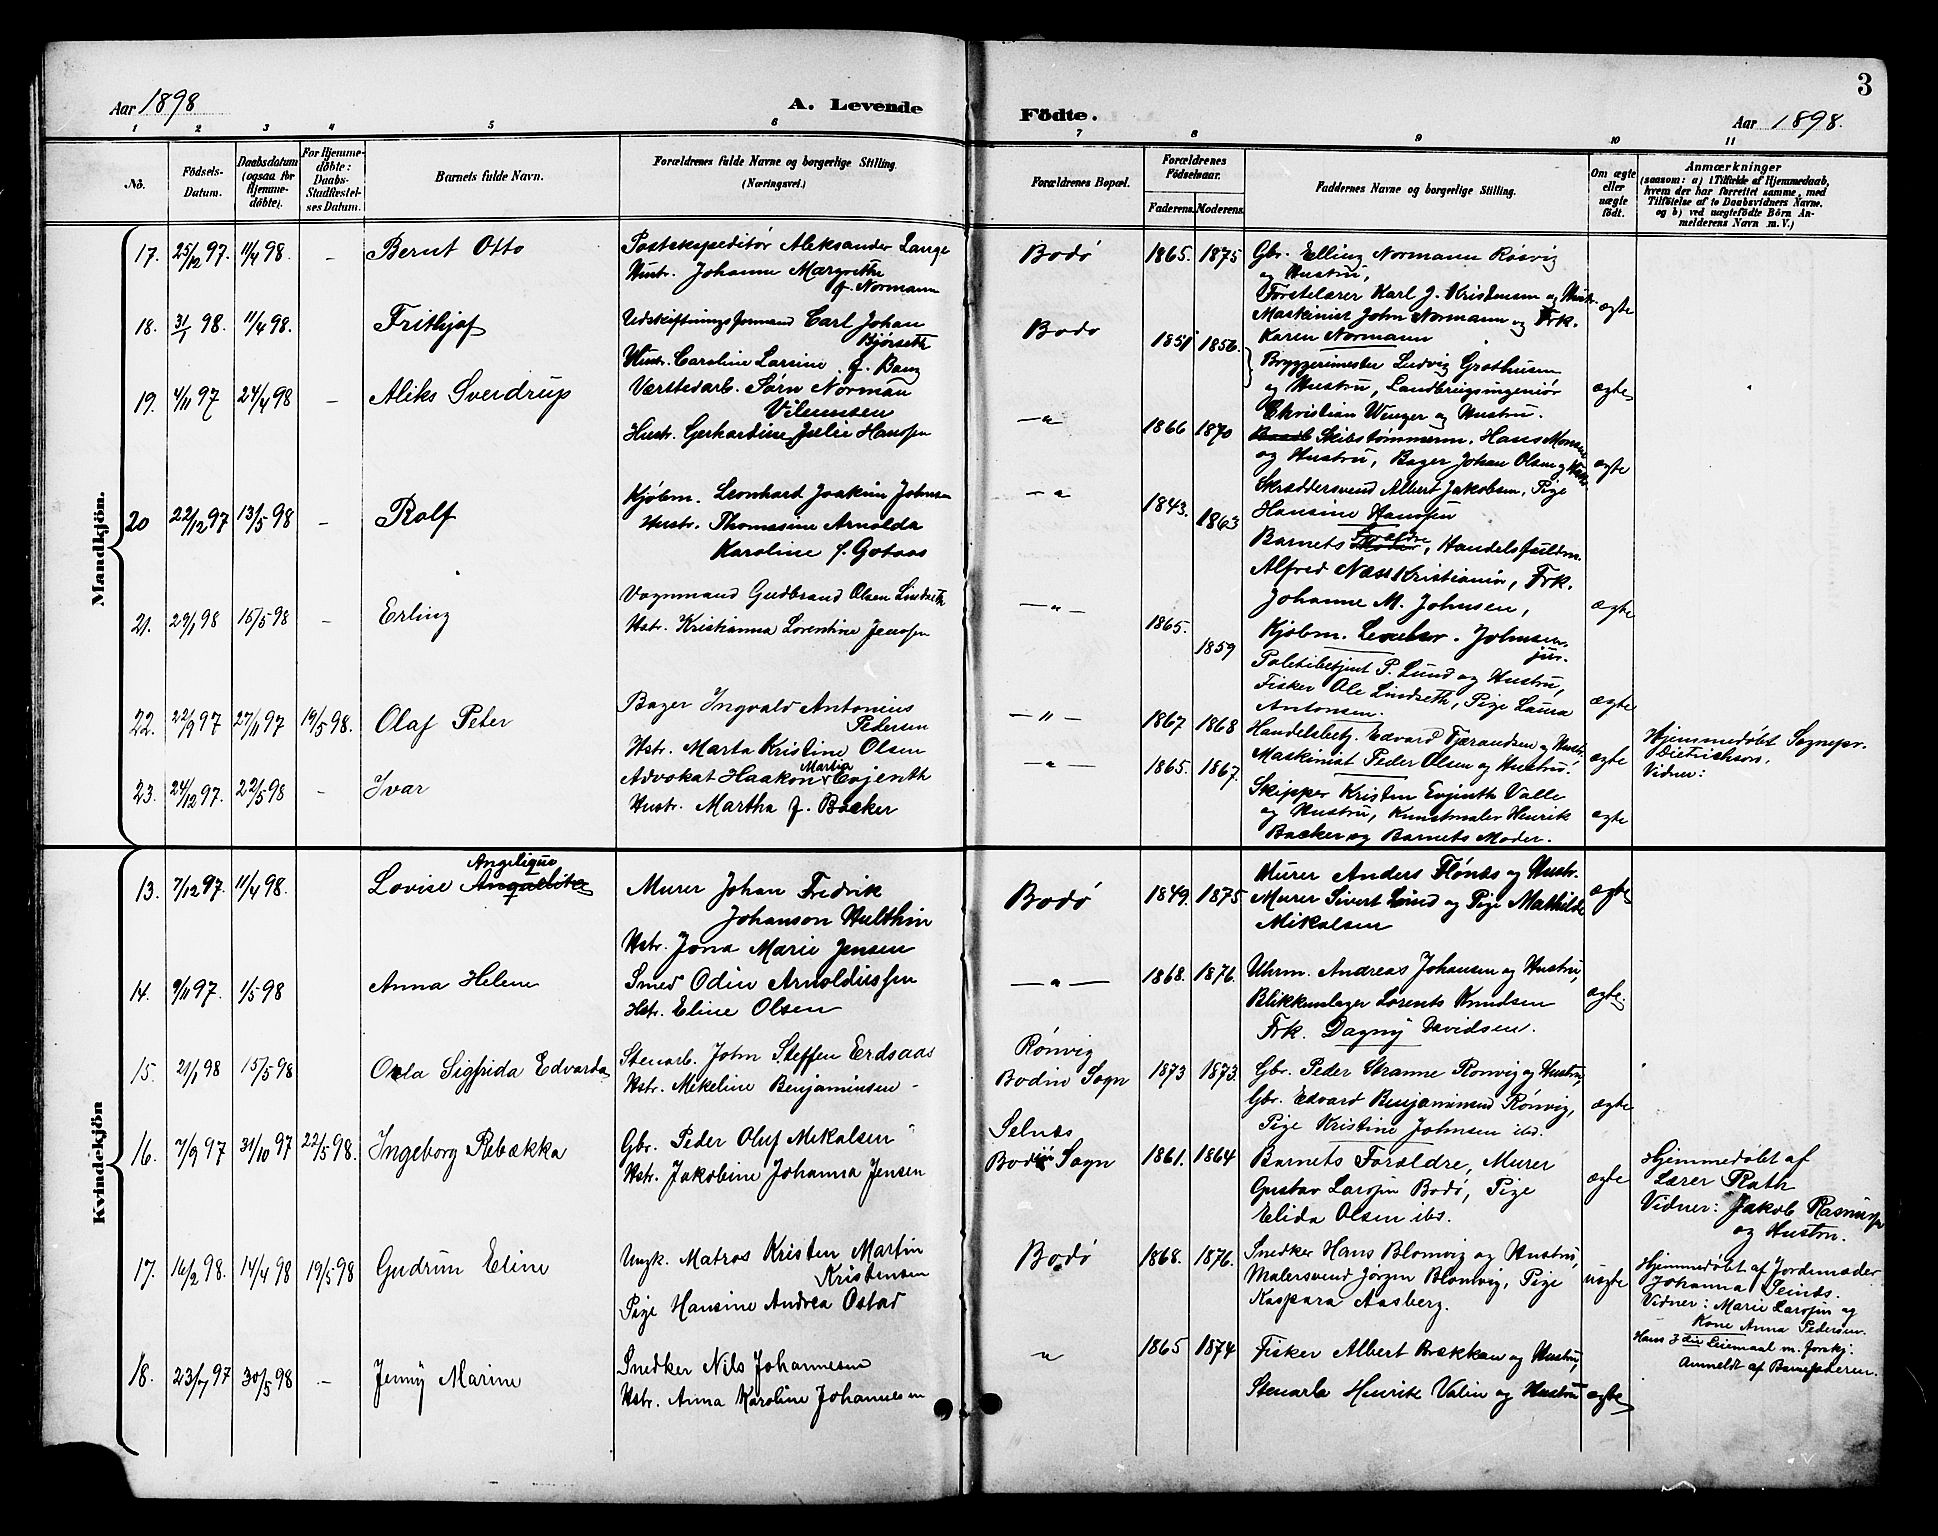 3
Aar 1898
A. Levende
Födte.
Aar 1898.
1 2 3 4 5 6 7 8 9 10 11
Nö.
Födsels-
Datum.
Daabsdatum
(ogsaa for
Hjemme-
döbte).
For Hjemme-
döbte:
Daabs-
Stadfæstel-
ses Datum.
Barnets fulde Navn.
Forældrenes fulde Navne og borgerlige Stilling.
(Næringsvei.)
Forældrenes Bopæl.
Forældrenes
Födselsaar.
Faderens. Moderens.
Faddernes Navne og borgerlige Stilling.
Om ægte
eller
uægte
födt.
Anmærkninger
(saasom: a) i Tilfælde af Hjemmedaab,
hvem der har forrettet samme, med
Tilföielse af to Daabsvidners Navne.
og b) ved uægtefödte Börn An-
melderens Navn m. V.)
Mandkjön.
17. 25/12 97. 11/4 98. - Bernt Otto
Postekspeditör Aleksander Lange
Hustr. Johanne Margrethe
f. Normann
Bodö 1865. 1875
Gbr. Elling Normann Rösvig
og Hustru,
Förstelærer Karl J. Kristensen og Hustr.
Maskinist John Normann og Frk.
Karen Normann
ægte
18. 31/1 98. 11/4 98. - Frithjof
Udskiftningsformand Carl Johan
Bjørseth
Hustr. Caroline Larsine f. Bang
Bodö 1851 1856.
Bryggerimester Ludvig Grothusen
og Hustru, Landbrugsingeniör
Christian Wenger og Hustru.
ægte
19. 4/11 97 24/4 98 - Aliks Sverdrup
Værkstedarb. Sörn Norman
Vilumsen
Hustr. Gerhardine Julie Hansen
-"- 1866 1870
Skibstömmerm. Hans Monsen
og Hustru, Bager Johan Olsen og Hustr.
Skræddersvend Albert Jakobsen, Pige
Hansine Hansen
ægte
20 22/12 97 13/5 98 - Rolf
Kjöbm. Leonhard Joakim Johnsen
Hustr. Thomasine Arnolda
Karoline f. Gotaas
-" 1843. 1863
Barnets Forældre, Handelsfuldm.
Alfred Næss Kristiania, Frk.
Johanne M. Johnsen,
Kjöbm. Leonhar. Johnsen
jun.
ægte
21. 29/1 98 15/5 98 - Erling
Vognmand Gudbrand Olsen Lindseth
Hstr. Kristianna Lorentine Jensen
-"- 1865. 1859
Politibetjent P. Lund og Hustru,
Fisker Ole Lindseth, Pige Laura
Antonsen.
ægte
22. 22/9 97 27/11 97 19/5 98. Olaf Peter
Bager Ingvald Antonius
Pedersen
Hstr. Marta Kristine Olsen
-"- 1867 1868
Handelsbetj. Edvard Tjerandsen og Hustr.
Maskinist Peder Olsen og Hustru.
ægte
Hjemmedöbt Sognepr.
Dietrichson.
Vidner:
23. 24/12 97. 22/5 98 - Ivar
Advokat Haakon Martin Evjenth
Hustr. Martha f. Backer
-"- 1865. 1867.
Skipper Kristen Evjenth Valle
og Hustru, Kunstmaler Henrik
Backer og Barnets Moder.
ægte
Kvindekjön
13. 7/12 97. 11/4 98. Lovise Angelique
Murer Johan Fredrik
Johanson Hulthin
Hstr. Jona Marie Jensen
Bodö 1849. 1875
Murer Anders Flönes og Hustr.
Murer Sivert Lund og Pige Mathilde
Mikalsen
ægte
14. 9/11 97. 1/5 98 Anna Helene
Smed Odin Arnoldussen
Hstr. Eline Olsen
-"- 1868. 1876.
Uhrm. Andreas Johansen og Hustru,
Blikkenslager Lorents Knudsen
Frk. Dagny Davidsen.
ægte.
15. 21/1 98 15/5 98 Orla Sigfrida Edvarda
Stenarb. John Steffen Eerdsaas
Hstr. Mikeline Benjaminsen -
Rönvig
Bodin Sogn 1873 1873.
Gbr. Peder Skranne Rönvig og Hustru,
Gbr. Edvard Benjaminsen Rönvig,
Pige Kristine Johnsen ibd.
ægte
16. 7/9 97 31/10 97 22/5 98. Ingeborg Rebekka
Gbr. Peder Oluf Mikalsen
Hstr. Jakobine Johanna Jensen
Selnes
Bodin Sogn 1861. 1864
Barnets Forældre, Murer
Gustav Larsen Bodö, Pige
Elida Olsen ibd.
ægte
Hjemmedöbt af
Lærer Rath
Vidner: Jakob Rasmuss.
og Hustru.
17. 16/2 98. 14/4 98 19/5 98 Gudrun Eline
Ungk. Matros Kristen Martin
Kristensen
Pige Hansine Andrea Ostad
Bodö 1868. 1876.
Snedker Hans Blomvig og Hustru,
Malersvend Jörgen Blomvig, Pige
Kaspara Aasberg.
uægte
Hjemmedöbt af Jordemoder
Johanna Teinds.
Vidner: Marie Larsen og
Kone Anna Pedersen.
Hans 3die Leiemaal m. forskj.
Anmeldt af Barnefaderen.
18. 23/7 97 30/5 98 - Jenny Marine
Snedker Nils Johannesen
Hstr. Anna Karoline Johannesen
" 1865 1874
Fisker Albert Brækkan og Hustru,
Stenarb. Henrik Valin og Hustru
ægte